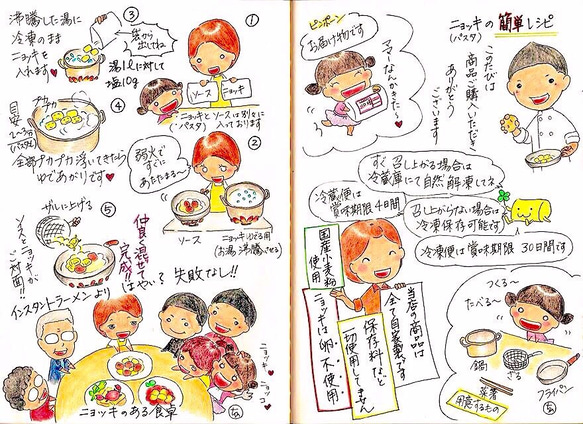 ニョッキの簡単レシピ
(パスタ)
このたびは
商品ご購入いただき
ありがとう
ございます
ピンポーン
お届け物です
ママーなんかきた〜♥
すぐ召し上がる場合は
冷蔵庫にて自然解凍してネ
召し上がらない場合は
冷凍保存可能です
冷凍便は賞味期限30日間です
冷蔵便は
賞味期限4日間
国産小麦粉
使用
ニョッキは卵不使用
当店の商品は
全て自家製です
保存料など
一切使用してません
つくる〜
たべる〜
鍋
ざる
フライパン
菜箸
用意するもの
①
ソース
ニョッキ
ニョッキとソースは別々に
(パスタ)
入っております
②
弱火で
すぐに
あたたまる〜
ソース
ニョッキゆでる用
(お湯沸騰させる)
③
沸騰した湯に
冷凍のまま
ニョッキを
入れます♥
袋から
出してね
湯1ℓに対して
塩10g
④
プカプカ
目安
2〜3分
全部プカプカ浮いてきたら
ゆであがりです♥
⑤
ザルに上げる
ソースとニョッキが
ご対面!!
仲良く混ぜて
完成!!
インスタントラーメンより
はやい?失敗なし!!
ニョッキ♥
ニョッコ♥
ニョッキのある食卓